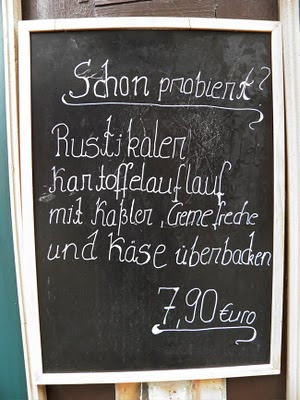 Schon probiert?
Rustikaler
Kartoffelauflauf
mit Kaßler, Creme freche
und Käse überbacken
7,90 Euro